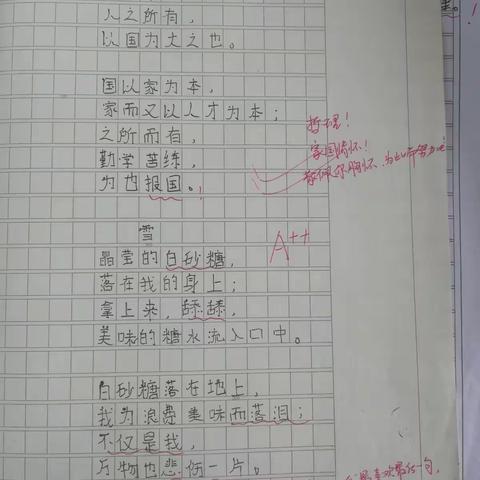 人之所有，
以国为大之也。
国以家为本，
家而又以人才为本；
之所而有，
勤学苦练，
为也报国。
哲理！
家国情怀！
敬佩你胸怀，为此而努力吧
雪
A++
晶莹的白砂糖，
落在我的身上；
拿上来，舔舔，
美味的糖水流入口中。
白砂糖落在地上，
我为浪费美味而落泪；
不仅是我，
万物也悲伤一片。